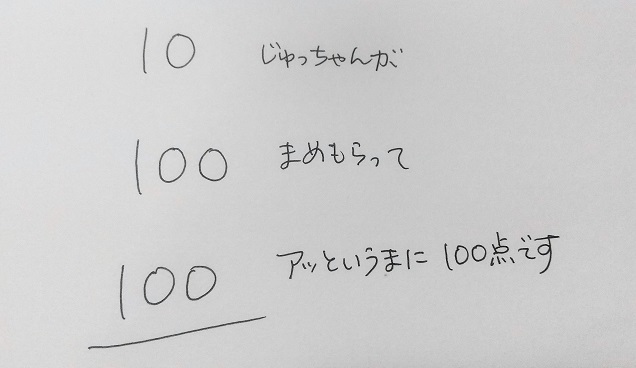 10 じゅっちゃんが
100 まめもらって
100 アッというまに 100点です